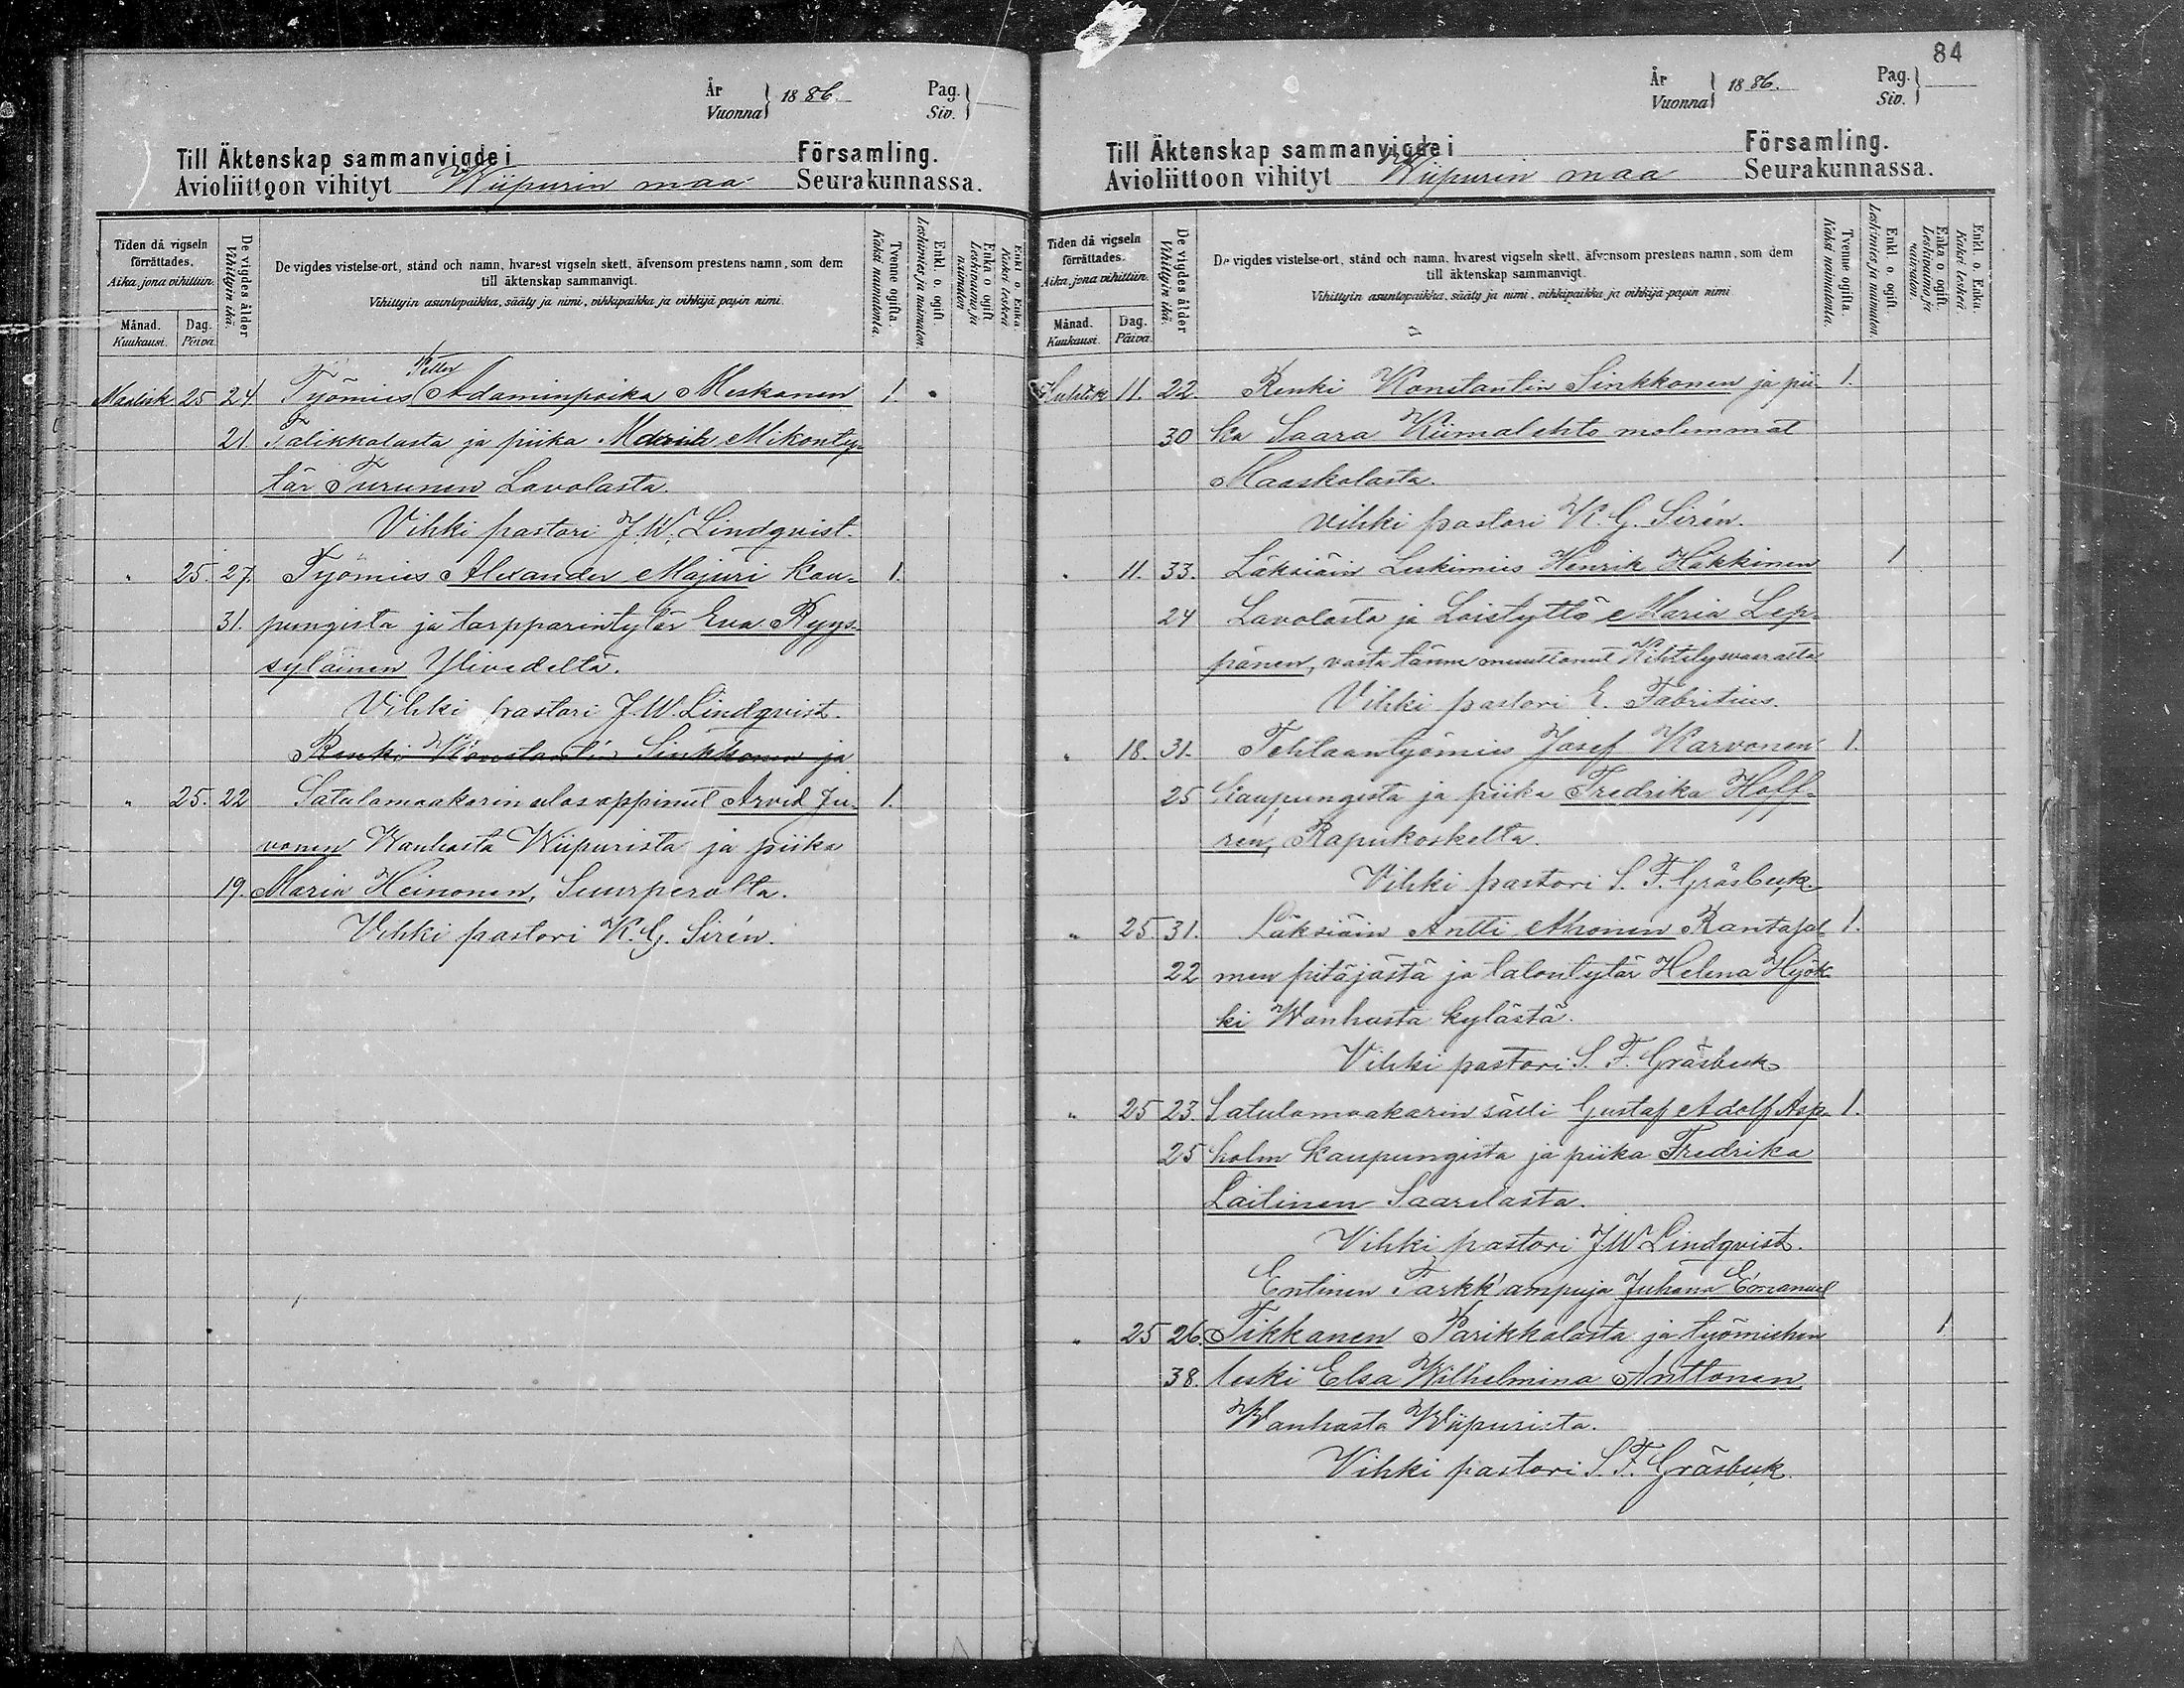 År
Vuonna } 1886.
Pag.
Siv. }
Till Äktenskap sammanvigde i Församling.
Avioliittoon vihityt Wiipurin maa Seurakunnassa.
Tiden då vigseln förrättades.
Aika, jona vihittiin.
Månad.
Kuukausi.
Dag.
Päivä
De vigdes ålder
Vihittyin ikä.
De vigdes vistelse-ort, stånd och namn, hvarest vigseln skett, äfvensom prestens namn, som dem
till äktenskap sammanvigt.
Vihittyin asuntopaikka, sääty ja nimi, vihkipaikka ja vihkijä papin nimi.
Tvenne ogifta.
Kaksi naimatonta.
Enkl. o. ogift.
Leskimies ja naimaton.
Enka o. ogift
Leskivaimo ja naimaton
Enkl. o. Enka
Kaksi leskeä
Petter
Maalisk. 25 24 Työmies Adaminpoika Meskanen 1.
21 Talikkalasta ja piika Maria Mikonty-
tär Turunen Lavolasta.
Vihki pastori J.W. Lindqvist.
" 25. 27. Työmies Alexander Majuri kau- 1.
31. pungista ja torpparintytär Eva Ryys-
syläinen Ylivedeltä.
Vihki pastori J.W. Lindqvist.
Renki Konstantin Sinkkonen ja
" 25. 22 Satulamaakarin ulosoppinut Arvid Ju- 1.
vonen Wanhasta Wiipurista ja piika
19. Maria Heinonen, Suurperältä.
Vihki pastori K. G. Sirén.
84
År
Vuonna } 1886.
Pag.
Siv. }
Till Äktenskap sammanvigde i Församling.
Avioliittoon vihityt Wiipurin maa Seurakunnassa.
Tiden då vigseln förrättades.
Aika, jona vihittiin
Månad.
Kuukausi.
Dag.
Päivä.
De vigdes ålder
Vihittyin ikä.
De vigdes vistelse-ort, stånd och namn, hvarest vigseln skett, äfvensom prestens namn, som dem
till äktenskap sammanvigt.
Vihittyin asuntopaikka, sääty ja nimi, vihkipaikka ja vihkijä-papin nimi
Tvenne ogifta.
Kaksi naimatonta.
Enkl. o. ogift.
Leskimies ja naimaton.
Enka o. ogift.
Leskivaimo ja naimaton.
Enkl. o. Enka.
Kaksi leskeä.
Huhtik 11. 22. Renki Konstantin Sinkkonen ja pii- 1.
30 ka Saara Kiimalehto molemmat
Maaskolasta.
Vihki pastori K. G. Sirén.
" 11. 33. Läksiäin Leskimies Henrik Häkkinen 1
24 Lavolasta ja Loistyttö Maria Lep-
pänen, vasta tänne muuttanut Kihtelysvaaralta
Vihki pastori E. Fabritius.
" 18. 31. Tehtaantyömies Josef Karvonen 1.
25 Kaupungista ja piika Fredrika Hoff-
ren, Rapukoskelta.
Vihki pastori S. F. Gräsbeck.
" 25. 31. Läksiäin Antti Ahonen Rantasal- 1.
22 men pitäjästä ja talontytär Helena Hyök-
ki Wanhasta kylästä.
Vihki pastori S. F. Gräsbeck
" 25 23. Satulamaakarin sälli Gustaf Adolf Asp- 1.
25 holm Kaupungista ja piika Fredrika
Laitinen Saarelasta.
Vihki pastori J W Lindqvist.
Entinen Tarkk'ampuja Juhana Emanuel
" 25 26. Tikkanen Parikkalasta ja työmiehen 1
38. leski Elsa Wilhelmina Anttonen
Wanhasta Wiipurista.
Vihki pastori S. F. Gräsbeck.